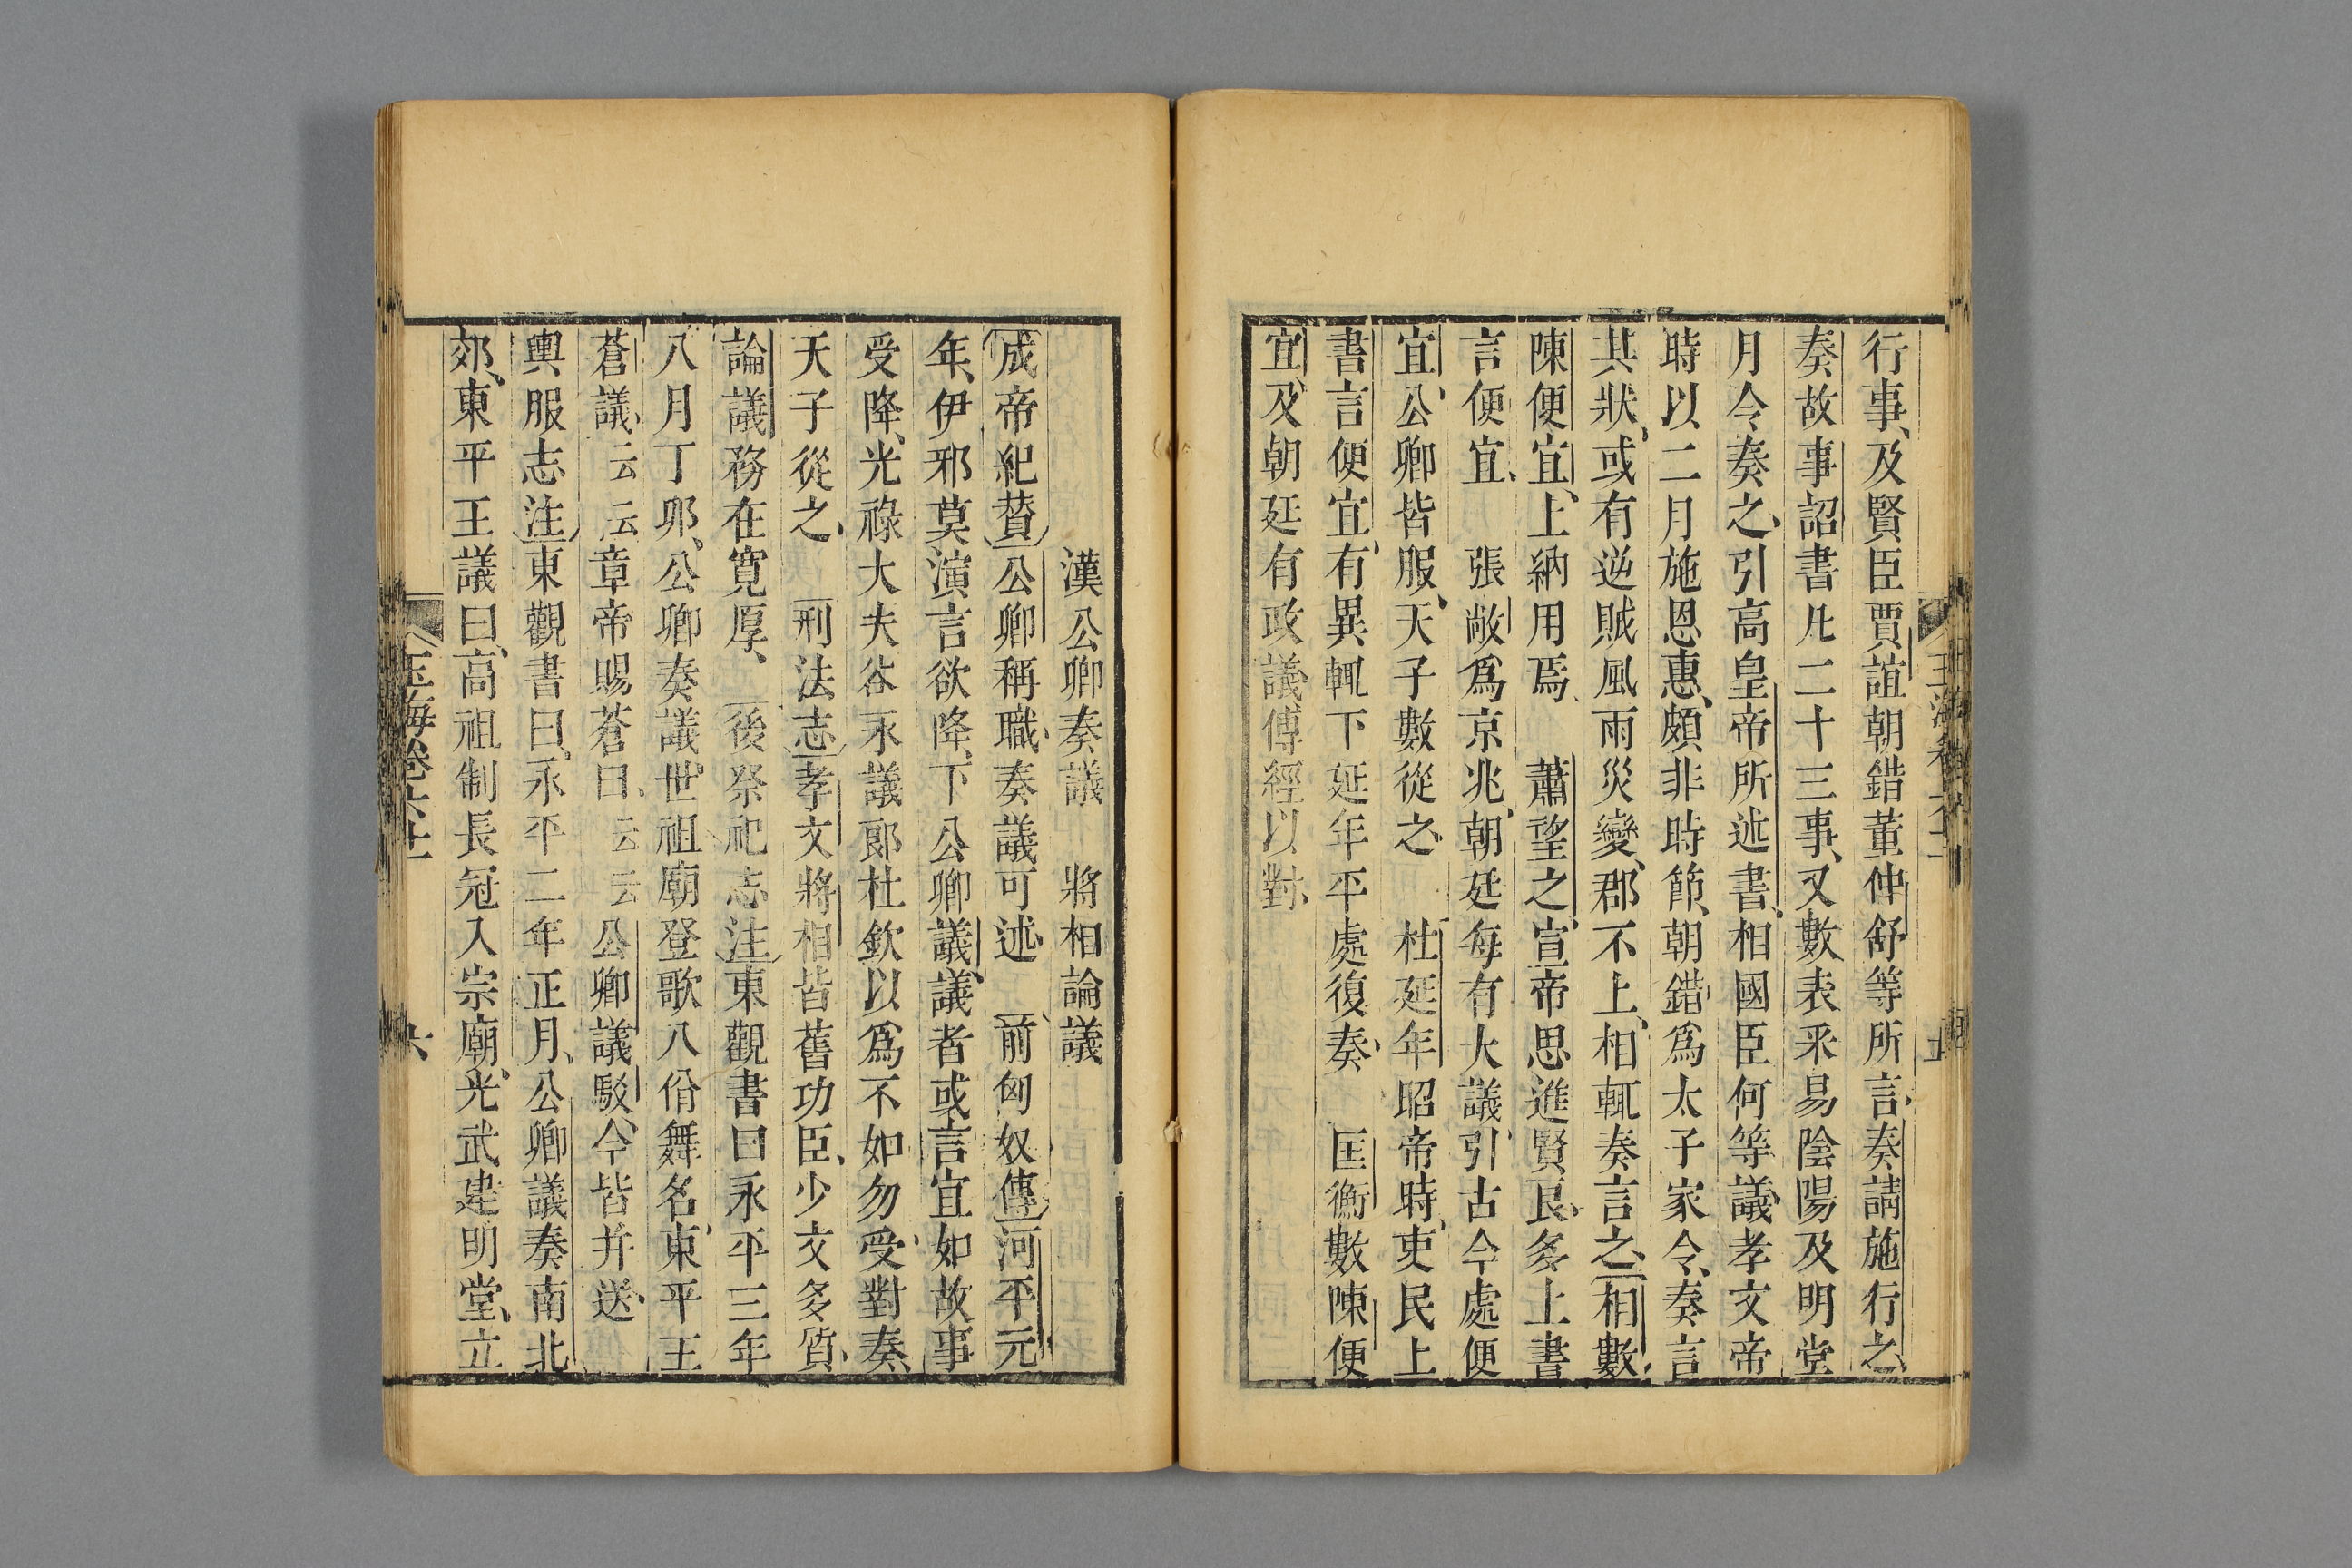 行事、及賢臣賈誼朝錯董仲舒等所言、奏請施行之、
奏故事詔書凡二十三事、又數表采易陰陽及明堂
月令奏之、引高皇帝所述書、相國臣何等議、孝文帝
時以二月施恩惠、頗非時節、朝錯爲太子家令、奏言
其狀、或有逆賊風雨災變、郡不上、相輒奏言之、相數
陳便宜、上納用焉、蕭望之、宣帝思進賢良、多上書
言便宜、張敞爲京兆、朝廷每有大議、引古今處便
宜、公卿皆服、天子數從之、杜延年昭帝時、吏民上
書言便宜、有異輒下延年平處復奏、匡衡數陳便
宜、及朝廷有政議、傅經以對、
漢公卿奏議 將相論議
成帝紀贊公卿稱職、奏議可述、前匈奴傳河平元
年、伊邪莫演言欲降、下公卿議、議者或言宜如故事
受降、光祿大夫谷永議郎杜欽以爲不如勿受、對奏、
天子從之、刑法志孝文將相皆舊功臣、少文多質、
論議務在寬厚、後祭祀志注東觀書曰永平三年
八月丁卯、公卿奏議、世祖廟登歌八佾舞名、東平王
蒼議、云云章帝賜蒼曰、云云公卿議駁、今皆幷送、
輿服志注東觀書曰、永平二年正月、公卿議奏南北
郊、東平王議曰、高祖制長冠入宗廟、光武建明堂、立
玉海卷六十一 六